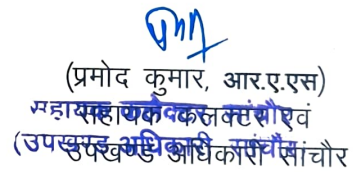 (प्रमोद कुमार, आर.ए.एस)
सहायक कलक्टर एवं
उपखण्ड अधिकारी सांचौर
सहायक कलेक्टर सांचौर
(उपखण्ड अधिकारी सांचौर)